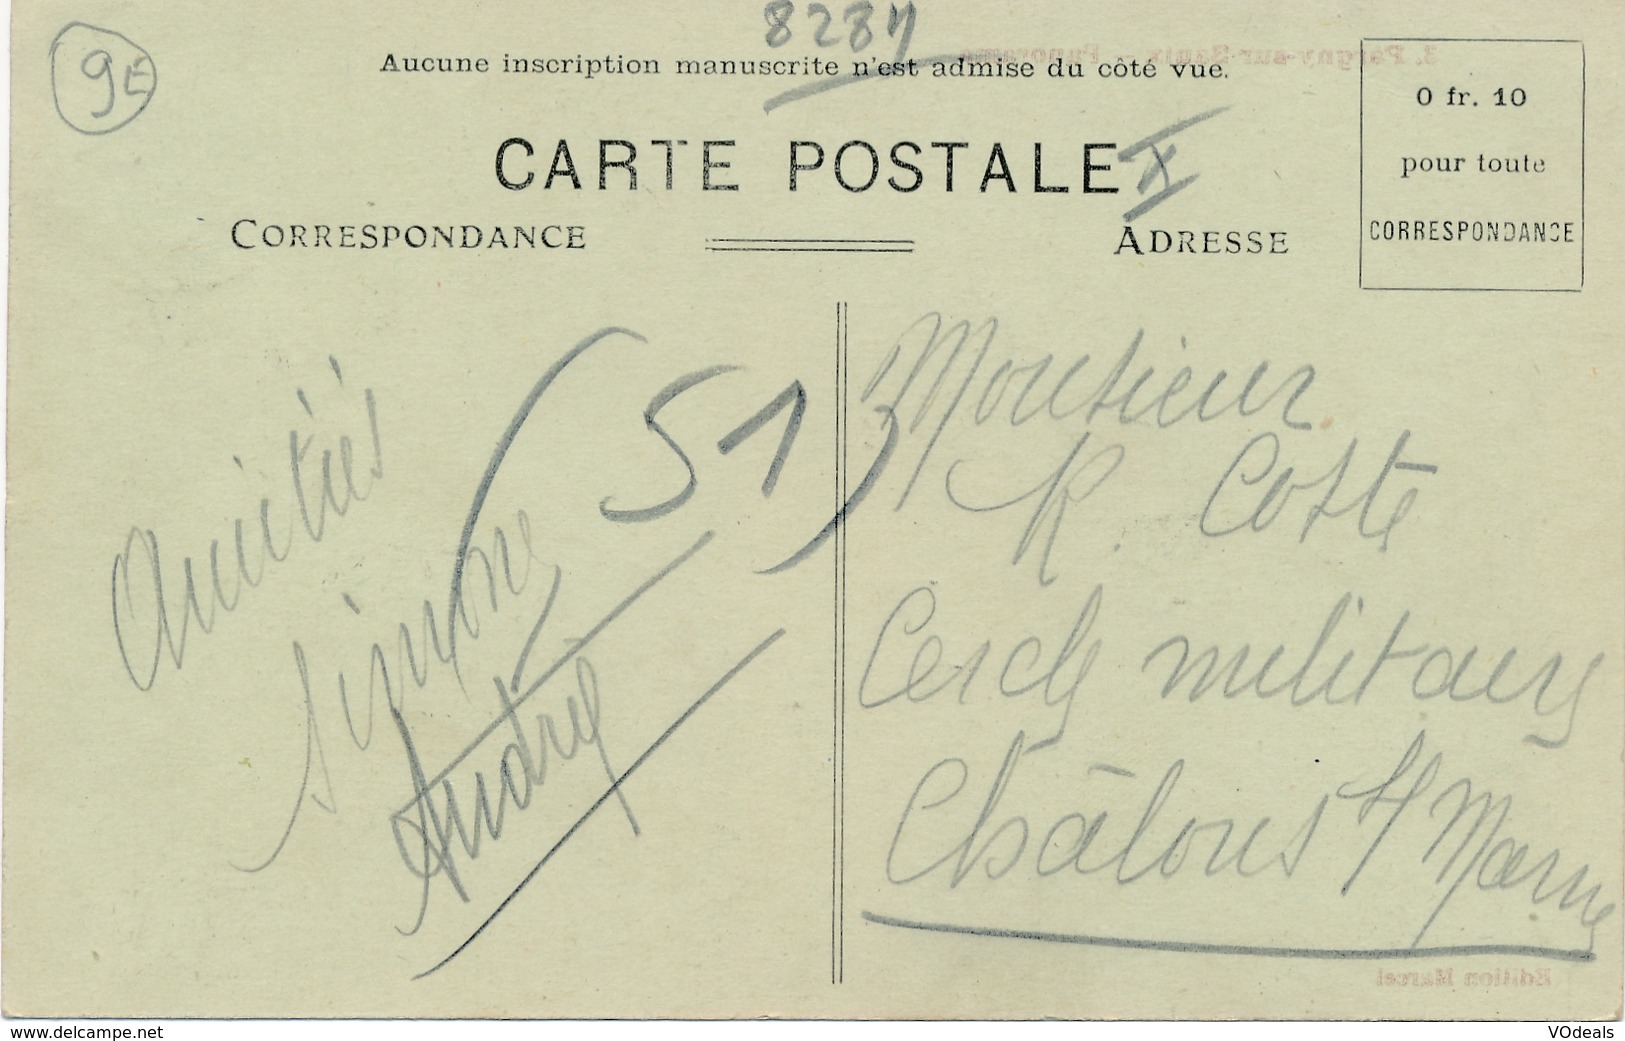 8284
9E
3. Pargny-sur-Saulx - Panorama
Aucune inscription manuscrite n'est admise du côté vue.
CARTE POSTALE
CORRESPONDANCE
ADRESSE
0 fr. 10
pour toute
CORRESPONDANCE
Amitiés
Simone
André
(51)
Monsieur
R. Coste
Cercle militaire
Châlons s/ Marne
Edition Marcel
www.delcampe.net
VOdeals